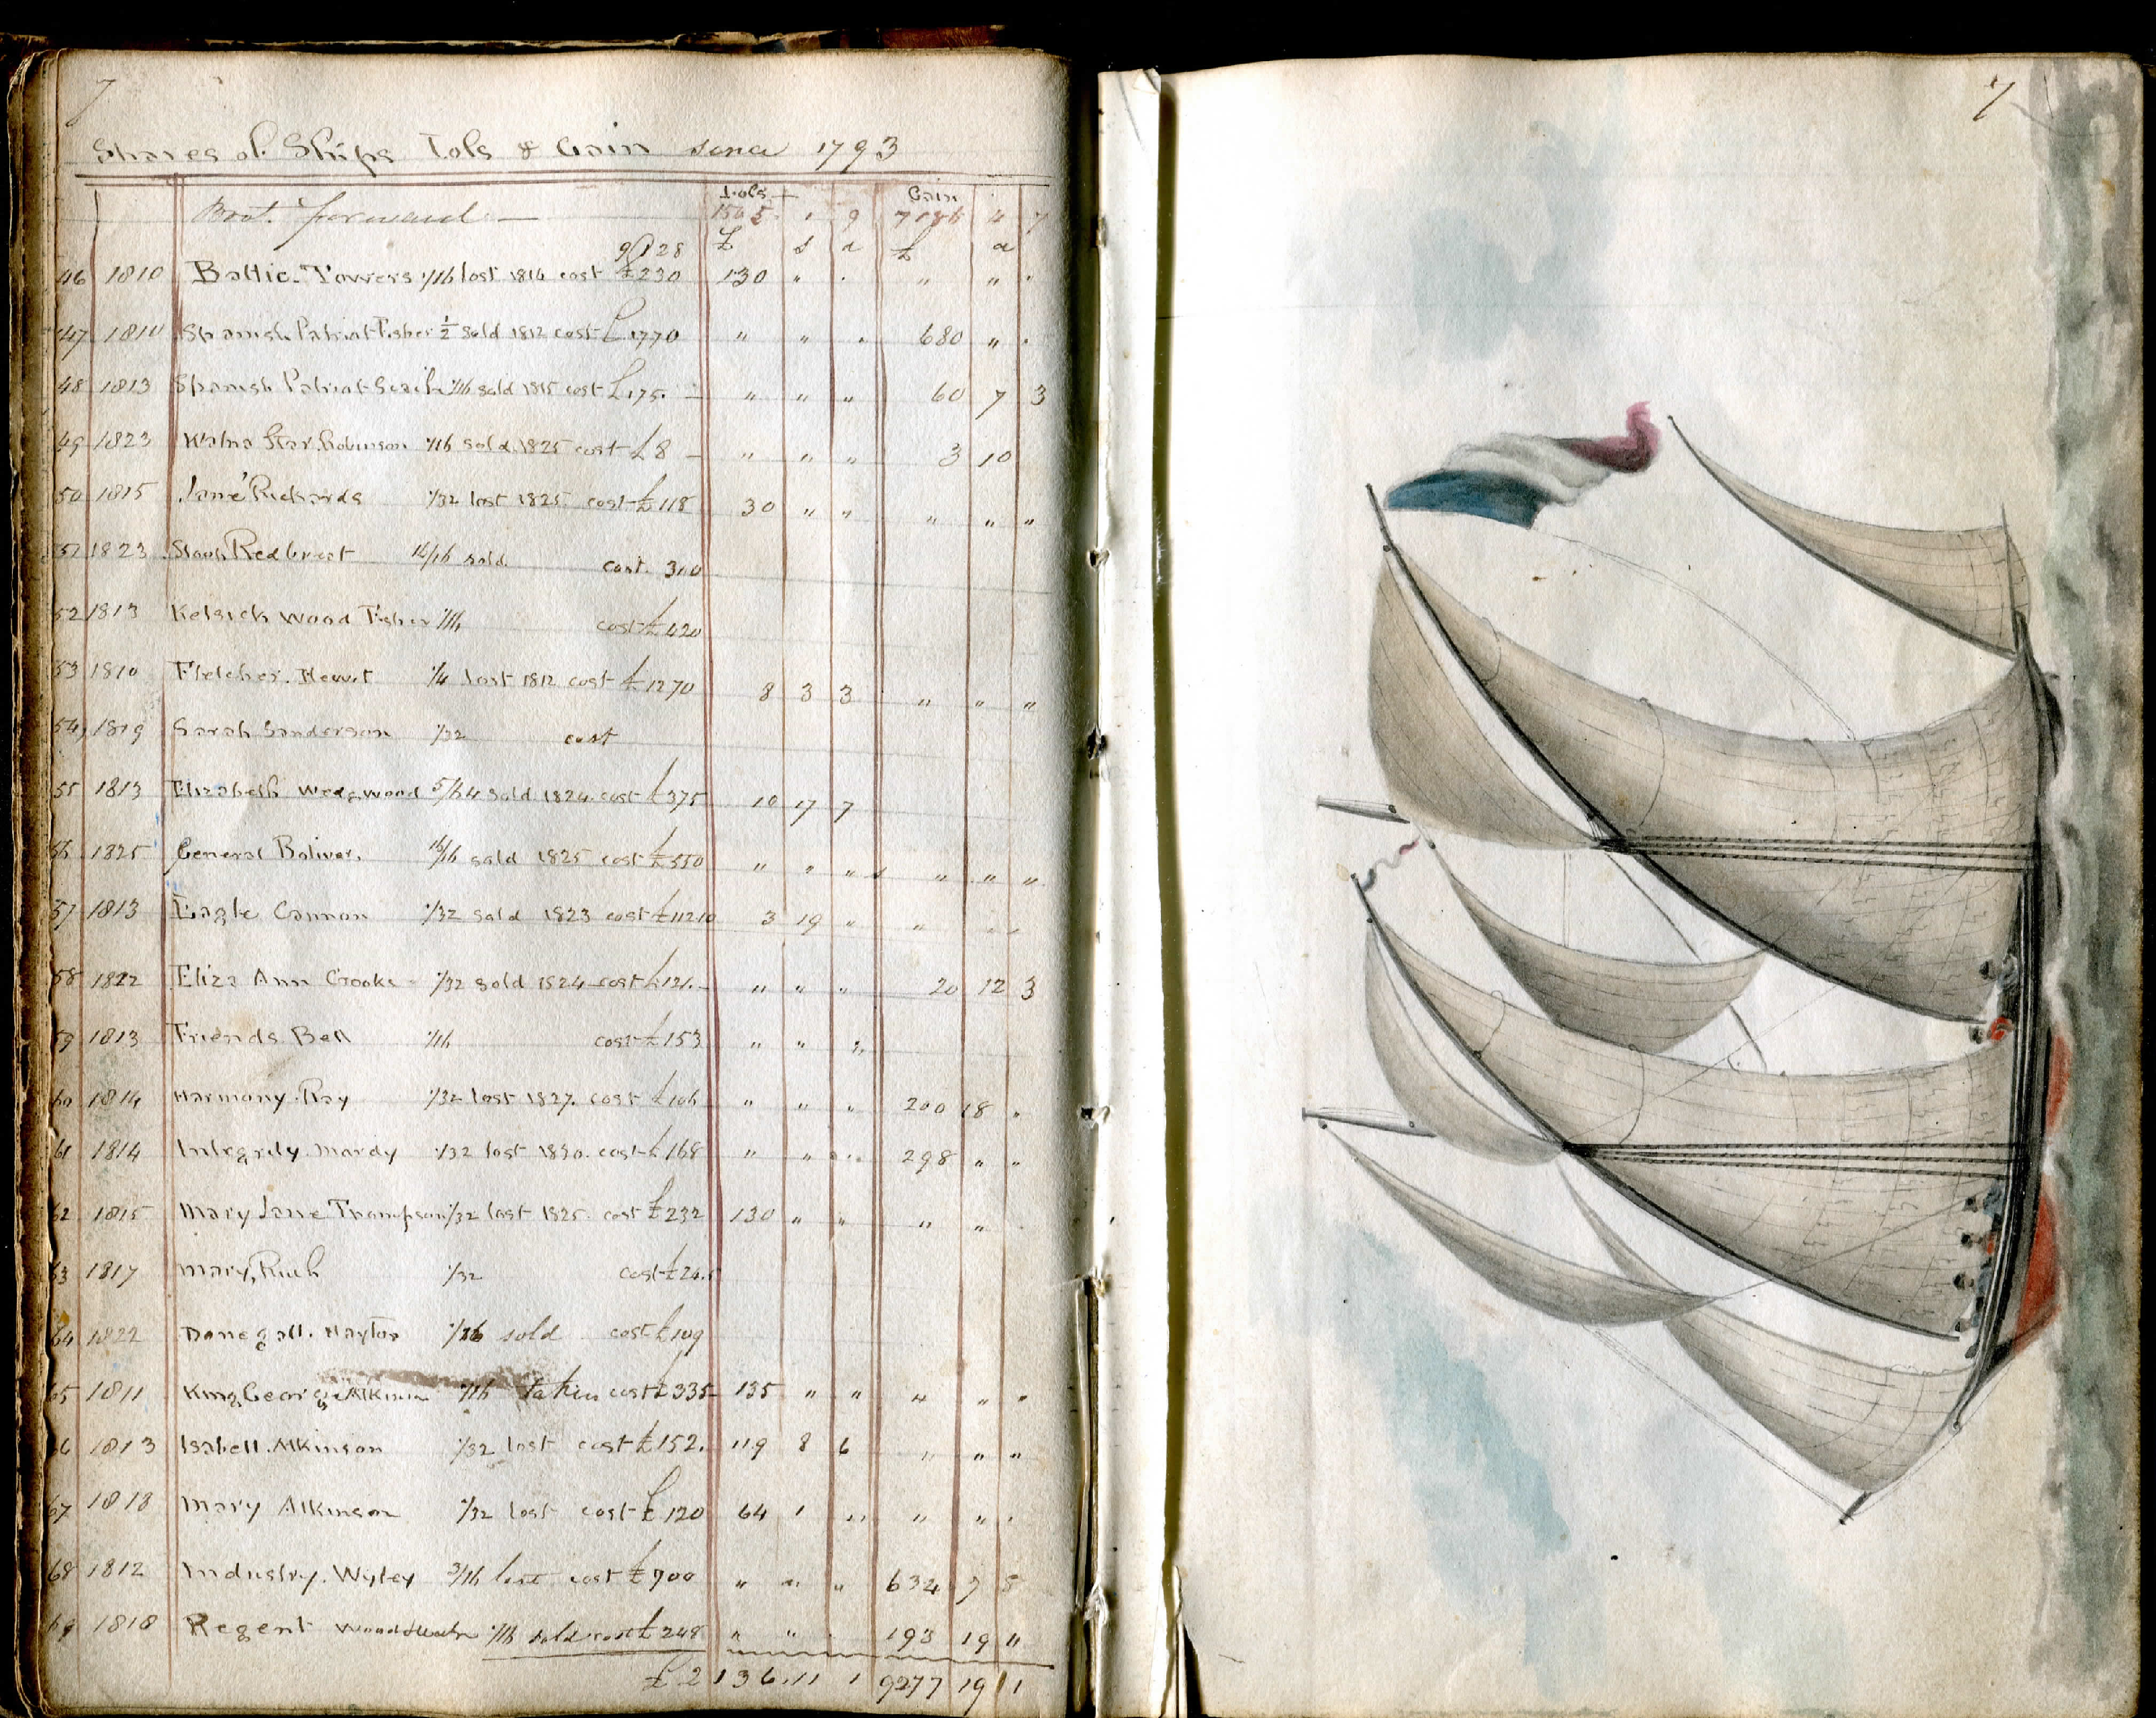 7
Shares of Ships Lols & Gain since 1793
Lols Gain
Brot. forward 1505 1 9 7186 4 7
£ s d £ d
46 1810 Baltic. Towers 1/16 lost 1814 cost £230 130 " " " "
47 1810 Spanish Patriot Fisher 1/2 sold 1812 cost £1770 " " " 680 "
48 1813 Spanish Patriot 1/16 sold 1815 cost £175. " " " 60 7 3
49 1823 Star. Robinson 1/16 sold 1825 cost £8 " " " 3 10
50 1815 Jane Richards 1/32 lost 1825 cost £118 30 " " " " "
51 1823 Sloop Redbreast 16/16 sold cost. 310
52 1813 Kelsick Wood Fisher 1/16 cost £420
53 1810 Fletcher. Hewit 1/4 lost 1812 cost £1270 8 3 3 " " "
54 1819 Sarah Sanderson 1/32 cost
55 1813 Elizabeth Wedgwood 5/64 sold 1824. cost £375 10 17 7
56 1825 General Boliver. 16/16 sold 1825 cost £550 " " " " " "
57 1813 Eagle Cannon 1/32 sold 1823 cost £11210 3 19 " " " "
58 1822 Eliza Ann Crooks 1/32 sold 1824 cost £121. " " " 20 12 3
59 1813 Friends Bell 1/16 cost £153 " " "
60 1814 Harmony. Ray 1/32 lost 1827. cost £106 " " " 200 18 "
61 1814 Integrity. Mordy 1/32 lost 1830. cost £168 " " " 298 " "
62 1815 Mary Jane Thompson 1/32 lost 1825. cost £232 130 " " " "
63 1817 Mary, 1/32 cost £24.5
64 1822 Donegall. Haytor 1/16 sold cost £109
65 1811 King George Atkinson 1/16 taken cost £335 135 " " " " "
66 1813 Isabell. Atkinson 1/32 lost cost £152. 119 8 6 " " "
67 1818 Mary Atkinson 1/32 lost cost £120 64 1 " " " "
68 1812 Industry. Wyley 3/16 lost cost £700 " " " 634 7 5
69 1818 Regent 1/16 sold cost £248 " " 193 19 11
£2136.11 1 9277 19 11
7